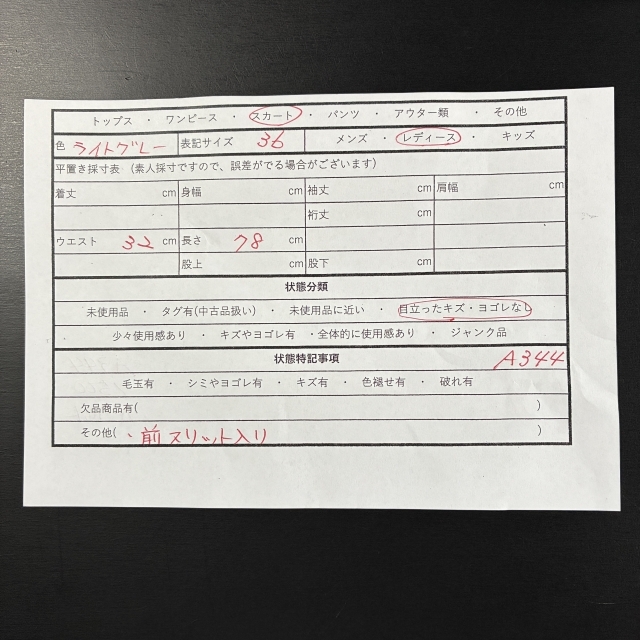 トップス ・ ワンピース ・ スカート ・ パンツ ・ アウター類 ・ その他
色 ライトグレー 表記サイズ 36 メンズ ・ レディース ・ キッズ
平置き採寸表 (素人採寸ですので、誤差がでる場合がございます)
着丈 cm 身幅 cm 袖丈 cm 肩幅 cm
裄丈 cm
ウエスト 32 cm 長さ 78 cm
股上 cm 股下 cm
状態分類
未使用品 ・ タグ有(中古品扱い) ・ 未使用に近い ・ 目立ったキズ・ヨゴレなし
少々使用感あり ・ キズやヨゴレ有 ・全体的に使用感あり ・ ジャンク品
状態特記事項 A344
毛玉有 ・ シミやヨゴレ有 ・ キズ有 ・ 色褪せ有 ・ 破れ有
欠品商品有( )
その他( ・前スリット入り )